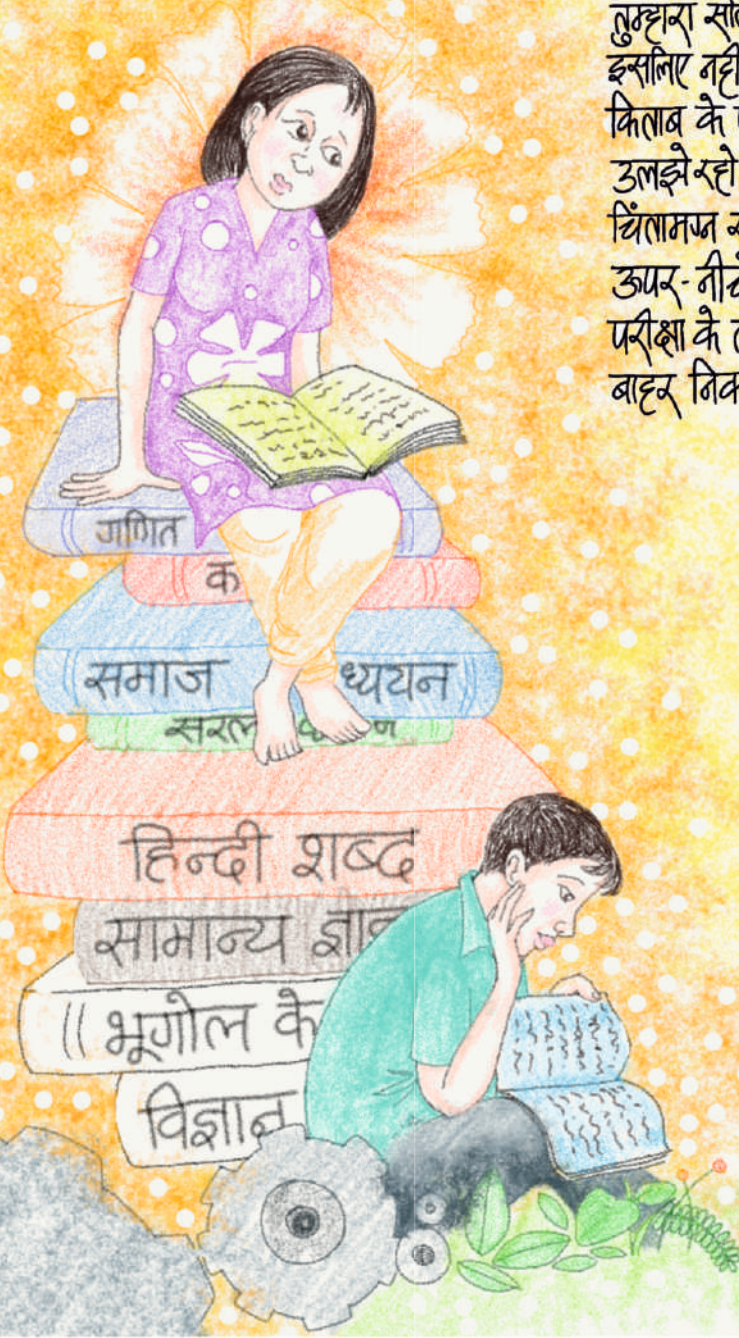 तुम्हारा
इसलिए नहीं
किताब के
उलझे रहो
चिंतामग्न
ऊपर-नीचे
परीक्षा के
बाहर
गणित
क
समाज ध्ययन
सरल
हिन्दी शब्द
सामान्य
भूगोल के
विज्ञान